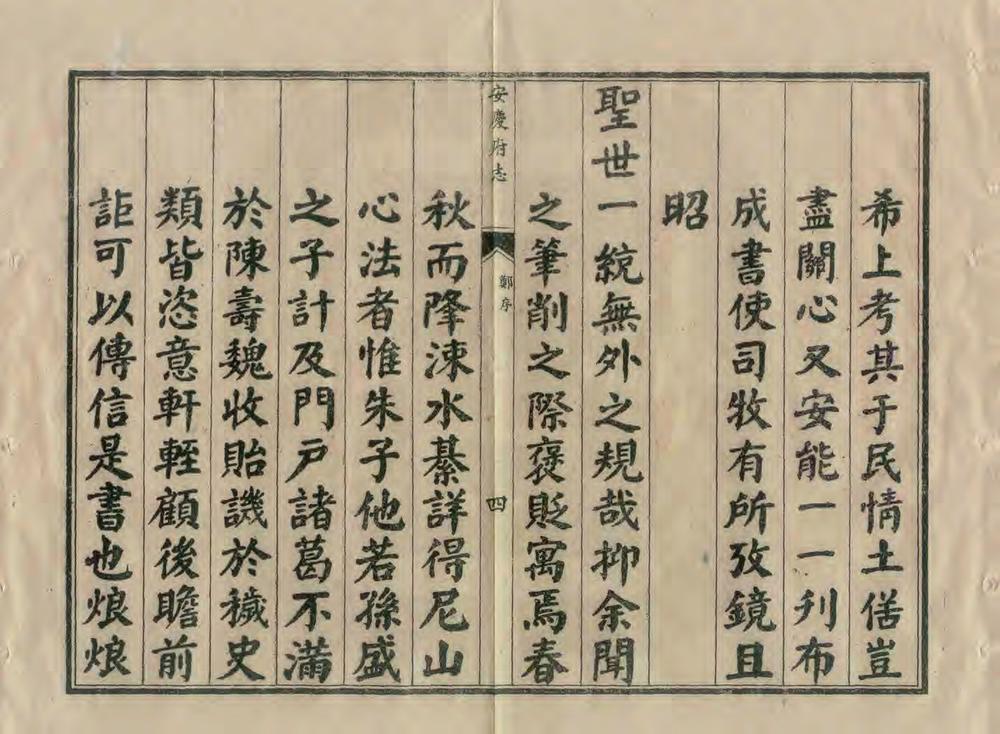 希上考其于民情土俗豈
盡關心又安能一一刋布
成書使司牧有所攷鏡且
昭
聖世一統無外之規哉抑余聞
之筆削之際褒貶寓焉春
安慶府志
鄭序
四
秋而降涑水綦詳得尼山
心法者惟朱子他若孫盛
之子計及門戸諸葛不滿
於陳壽魏收貽譏於穢史
類皆恣意軒輊顧後瞻前
詎可以傳信是書也烺烺